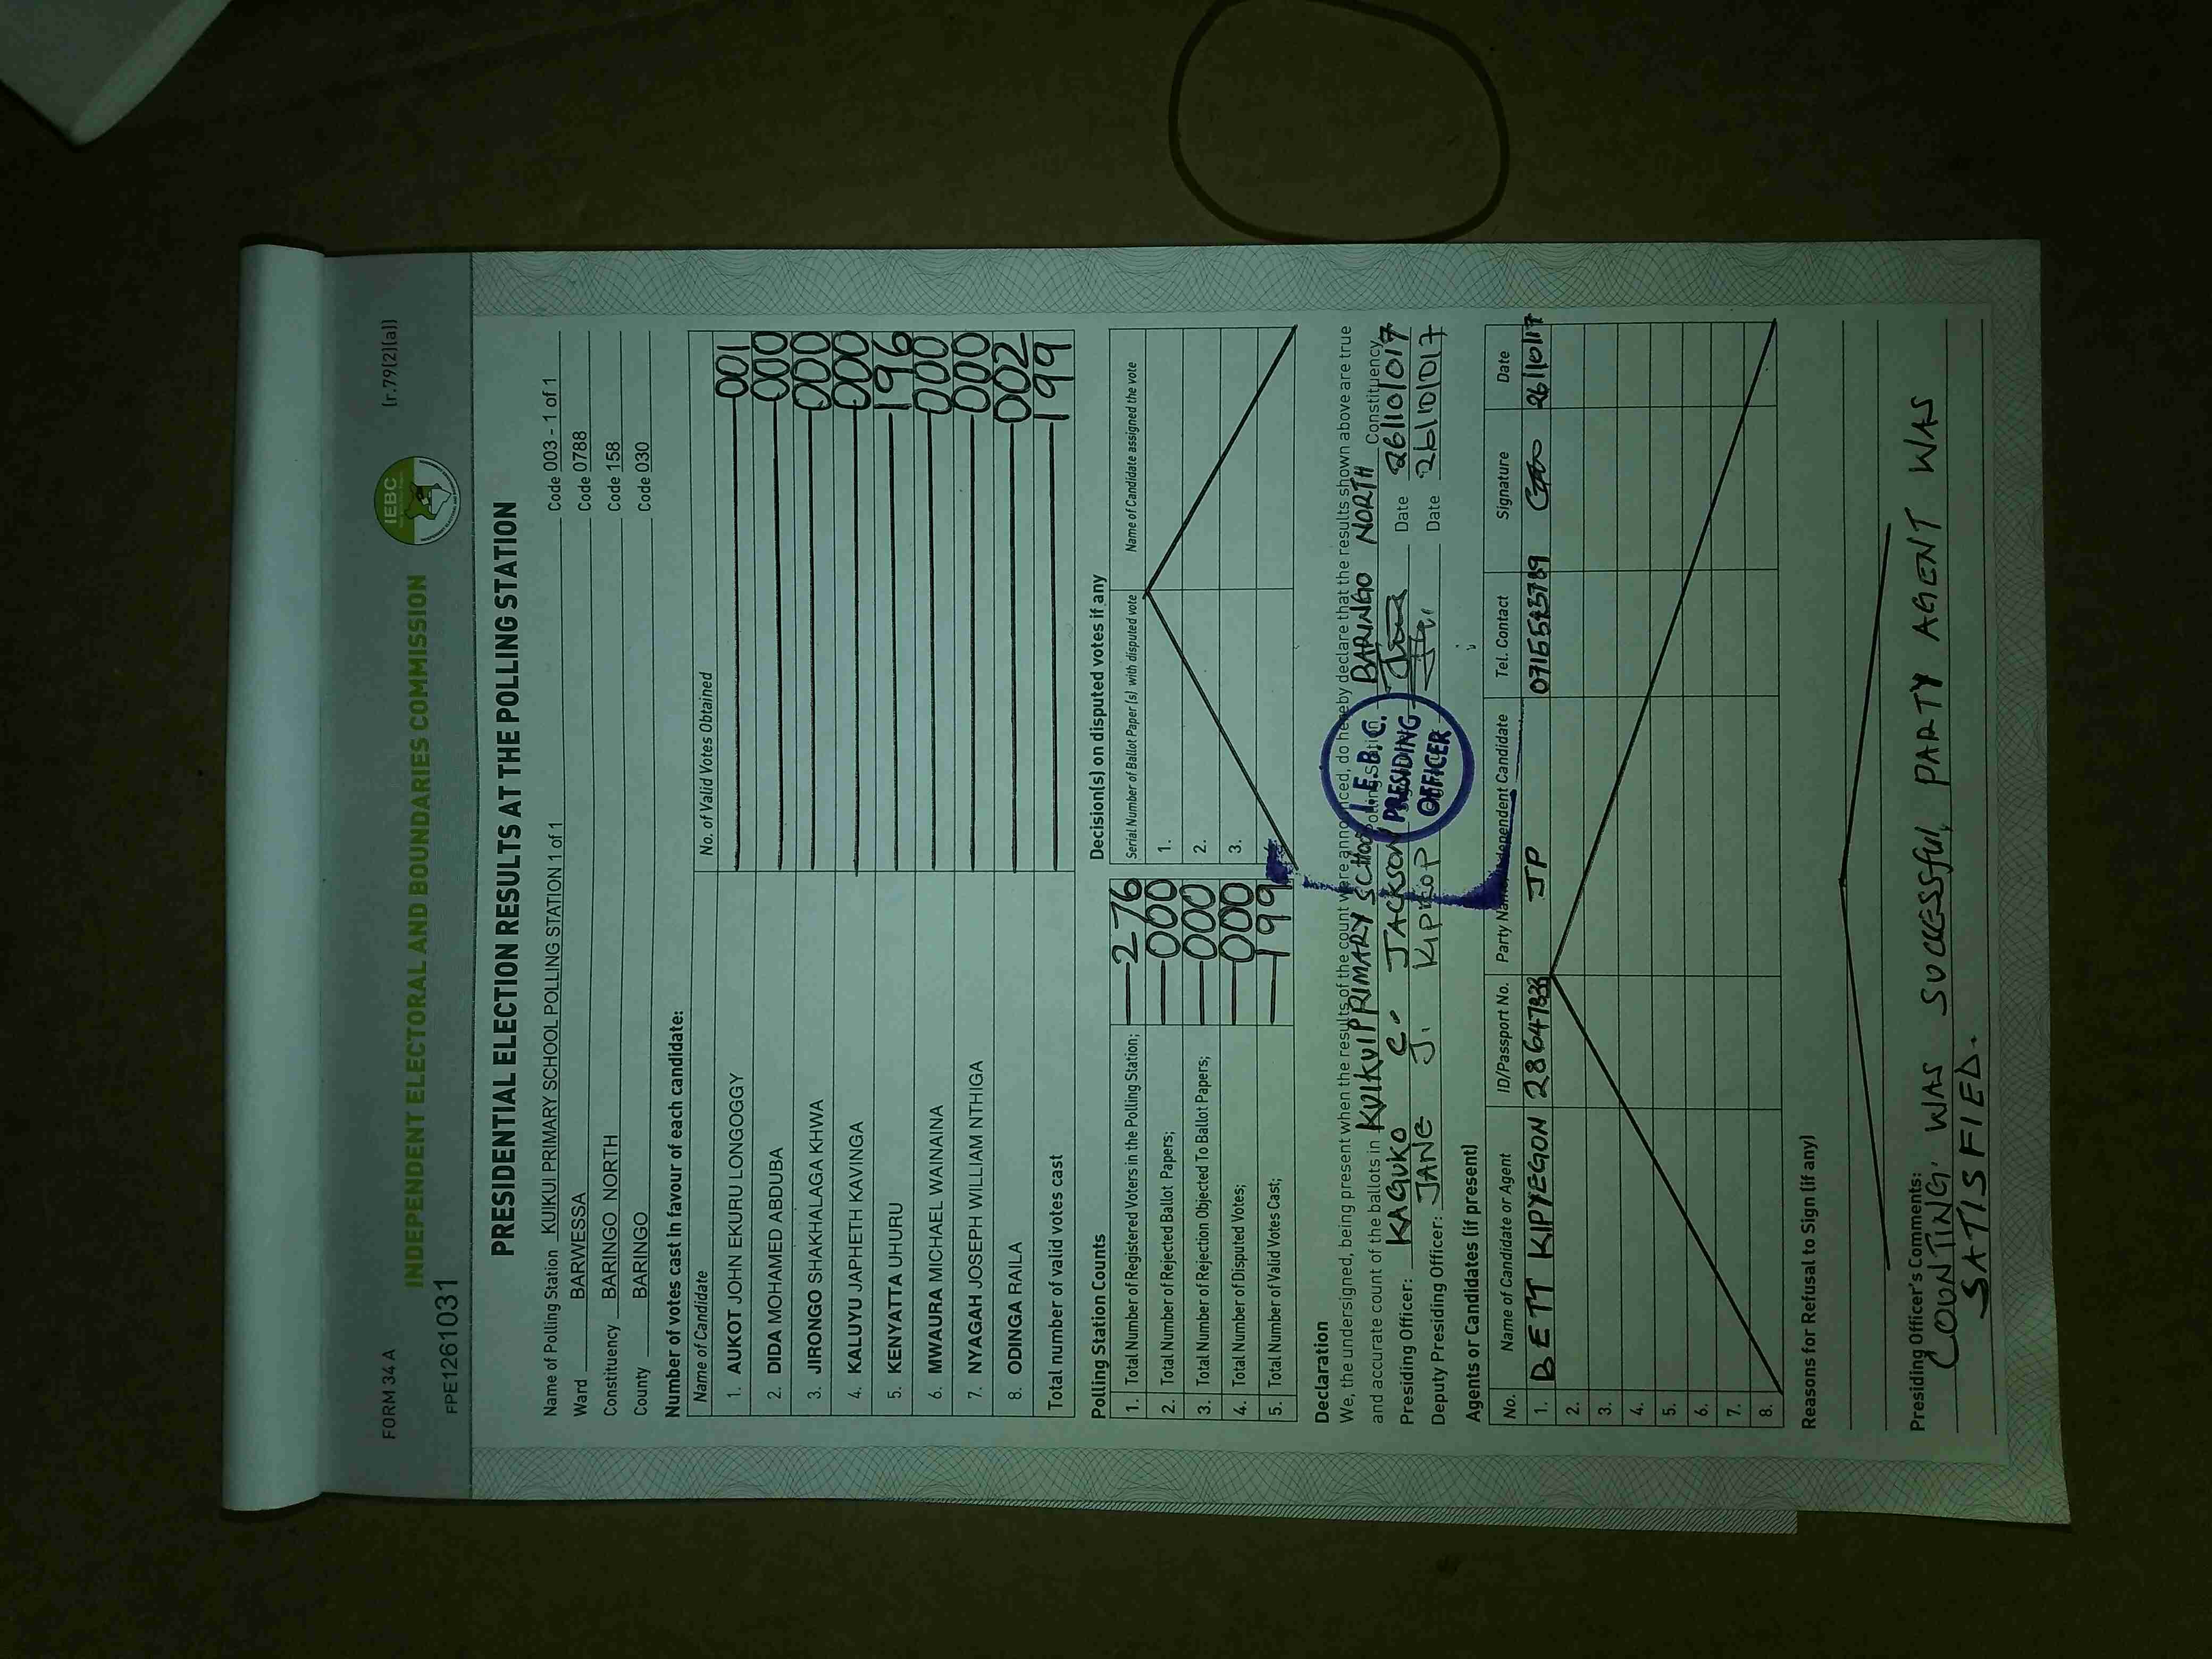 FORM 34 A
(r.79(2)(a))
INDEPENDENT ELECTORAL AND BOUNDARIES COMMISSION
IEBC
FPE1261031
PRESIDENTIAL ELECTION RESULTS AT THE POLLING STATION
Name of Polling Station KUIKUI PRIMARY SCHOOL POLLING STATION 1 of 1 Code 003 - 1 of 1
Ward BARWESSA Code 0788
Constituency BARINGO NORTH Code 158
County BARINGO Code 030
Number of votes cast in favour of each candidate:
Name of Candidate No. of Valid Votes Obtained
1. AUKOT JOHN EKURU LONGOGGY 001
2. DIDA MOHAMED ABDUBA 000
3. JIRONGO SHAKHALAGA KHWA 000
4. KALUYU JAPHETH KAVINGA 000
5. KENYATTA UHURU 196
6. MWAURA MICHAEL WAINAINA 000
7. NYAGAH JOSEPH WILLIAM NTHIGA 000
8. ODINGA RAILA 002
Total number of valid votes cast 199
Polling Station Counts
1. Total Number of Registered Voters in the Polling Station; 276
2. Total Number of Rejected Ballot Papers; 000
3. Total Number of Rejection Objected To Ballot Papers; 000
4. Total Number of Disputed Votes; 000
5. Total Number of Valid Votes Cast; 199
Decision(s) on disputed votes if any
Serial Number of Ballot Paper (s) with disputed vote Name of Candidate assigned the vote
1.
2.
3.
Declaration
We, the undersigned, being present when the results of the count were announced, do hereby declare that the results shown above are true
and accurate count of the ballots in KUIKUI PRIMARY SCHOOL Polling Station BARINGO NORTH Constituency
Presiding Officer: KAGUKO C. JACKSON Date 26/10/017
Deputy Presiding Officer: JANE J. KIPROP Date 26/10/017
I.E.B.C.
PRESIDING
OFFICER
Agents or Candidates (if present)
No. Name of Candidate or Agent ID/Passport No. Party Name/Independent Candidate Tel. Contact Signature Date
1. BETT KIPYEGON JP 26/10/17
2.
3.
4.
5.
6.
7.
8.
Reasons for Refusal to Sign (if any)
Presiding Officer's Comments:
COUNTING WAS SUCCESSFUL, PARTY AGENT WAS
SATISFIED.